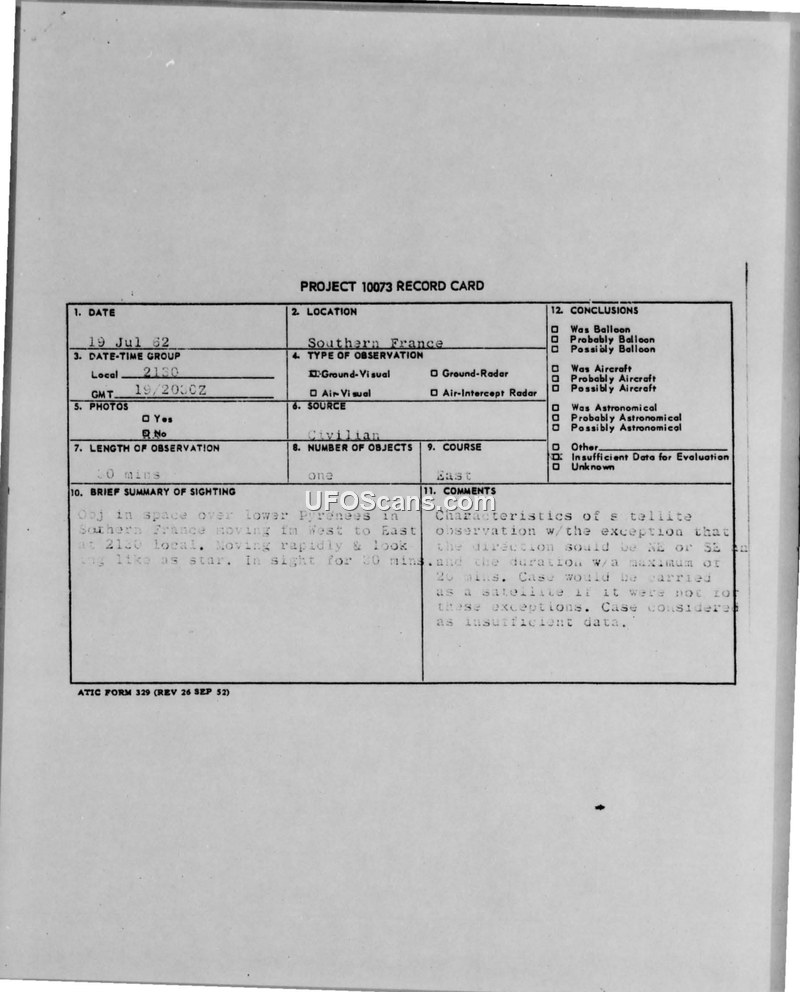 PROJECT 10073 RECORD CARD
1. DATE
19 Jul 62
2. LOCATION
Southern France
12. CONCLUSIONS
Was Balloon
Probably Balloon
Possibly Balloon
Was Aircraft
Probably Aircraft
Possibly Aircraft
Was Astronomical
Probably Astronomical
Possibly Astronomical
Other
Insufficient Data for Evaluation
Unknown
3. DATE-TIME GROUP
Local 2130
GMT 19/2030Z
4. TYPE OF OBSERVATION
Ground-Visual
Ground-Radar
Air-Visual
Air-Intercept Radar
5. PHOTOS
Yes
No
6. SOURCE
Civilian
7. LENGTH OF OBSERVATION
mins
8. NUMBER OF OBJECTS
one
9. COURSE
East
10. BRIEF SUMMARY OF SIGHTING
Obj in space over lower Pyrenees in
Southern France moving fm West to East
at 2130 local. Moving rapidly & look
ing like as star. In sight for mins.
11. COMMENTS
Characteristics of s tellite
observation w/the exception that
the direction sould be NE or SE
and the duration w/a maximum of
mins. Case would be carried
as a satellite if it were not for
these exceptions. Case considered
as insufficient data.
UFOScans.com
ATIC FORM 329 (REV 26 SEP 52)